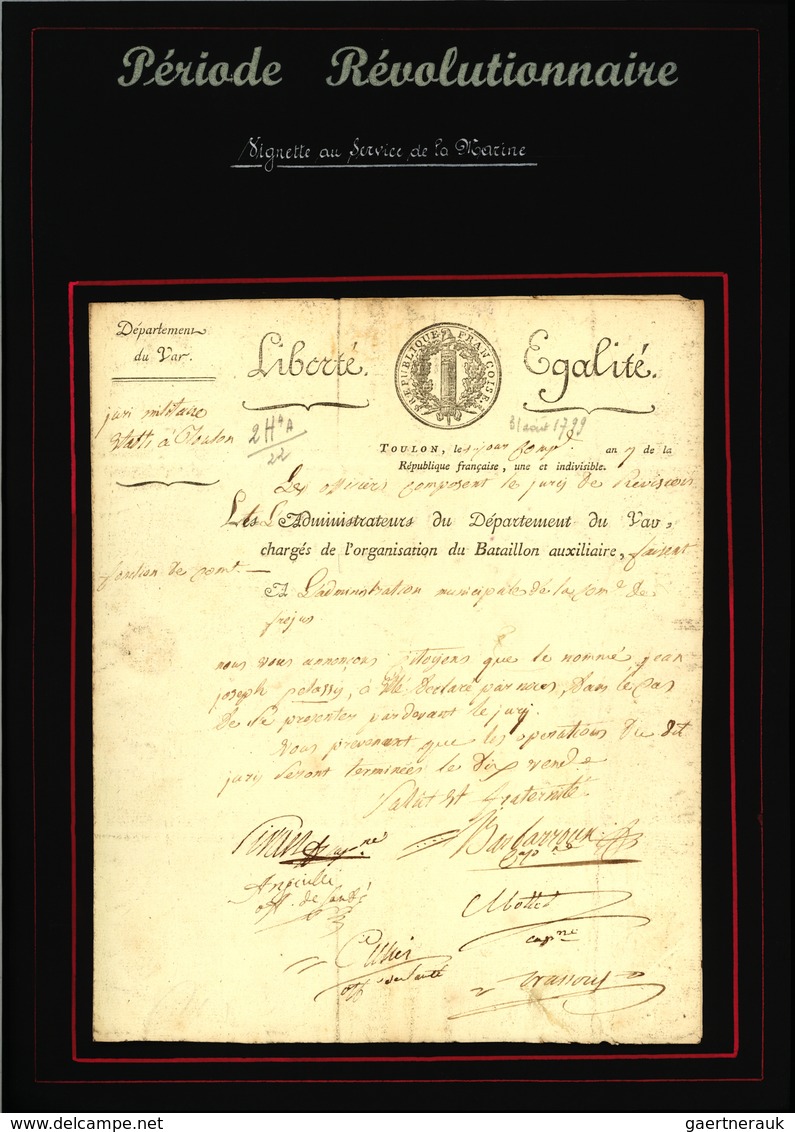 Période Révolutionnaire
Vignette au Service de la Marine
Département
du Var.
Liberté.
RÉPUBLIQUE FRANÇOISE
Egalité.
juri militaire
à Toulon
2 H A
22
31 août 1799
TOULON, le jour comp. an 7 de la
République française, une et indivisible.
Les officiers composent le jury de Revision
Les L'Administrateurs du Département du Var,
chargés de l'organisation du Bataillon auxiliaire, faisant
fonction de comt.
A L'administration municipale de la com.e de
frejus
nous vous annonçons Citoyens que le nommé jean
joseph pelassy, à été Declaré par nous, Dans le Cas
De Se presenter par devant le jury.
Vous prevenant que les operations du dit
jury Seront terminées le Dix vend.e
Salut et fraternité.
Barbarroux
off. de Santé
Mottet
capne
off. de santé